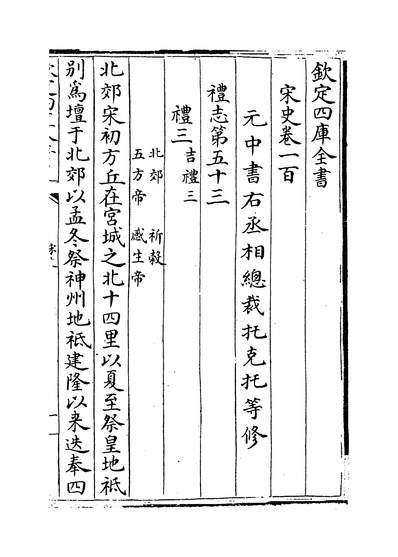 欽定四庫全書
宋史卷一百
元中書右丞相總裁托克托等修
禮志第五十三
禮三 吉禮三
北郊 祈榖
五方帝 感生帝
北郊宋初方丘在宮城之北十四里以夏至祭皇地祇
別為壇于北郊以孟冬祭神州地祇建隆以來迭奉四